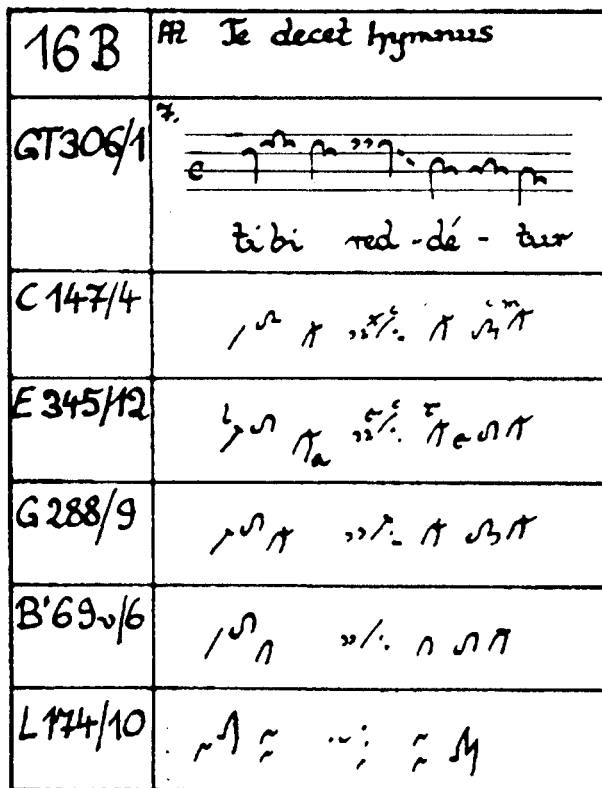 16B
Te decet hymnus
GT306/1
7.
c
tibi red-dé-tur
C 147/4
E 345/12
G 288/9
B'69v/6
L 174/10